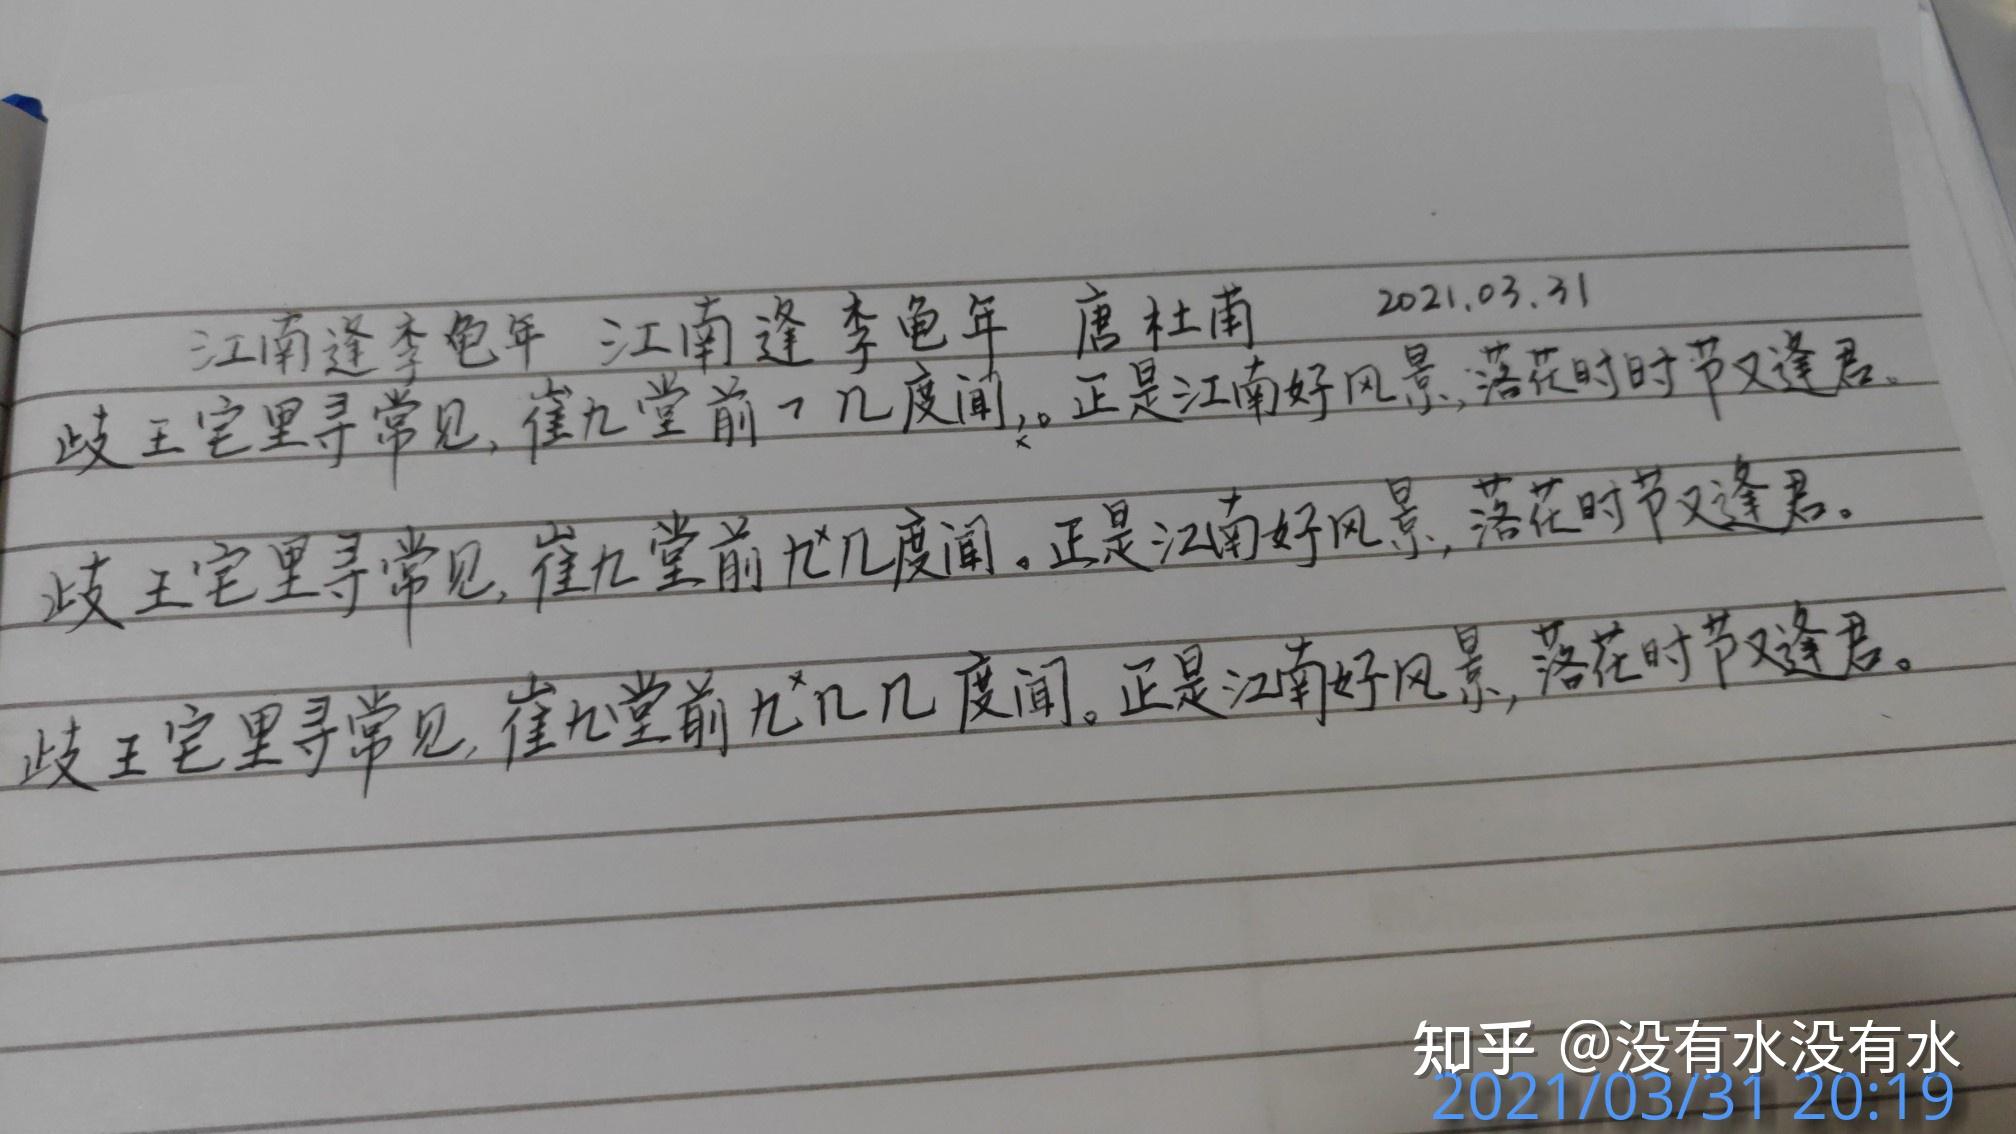 江南逢李龟年 江南逢李龟年 唐杜甫 2021.03.31
歧王宅里寻常见,崔九堂前㇇几度闻,。正是江南好风景,落花时时节又逢君。
歧王宅里寻常见,崔九堂前九×几度闻。正是江南好风景,落花时节又逢君。
歧王宅里寻常见,崔九堂前九×几几度闻。正是江南好风景,落花时节又逢君。
知乎 @没有水没有水
2021/03/31 20:19